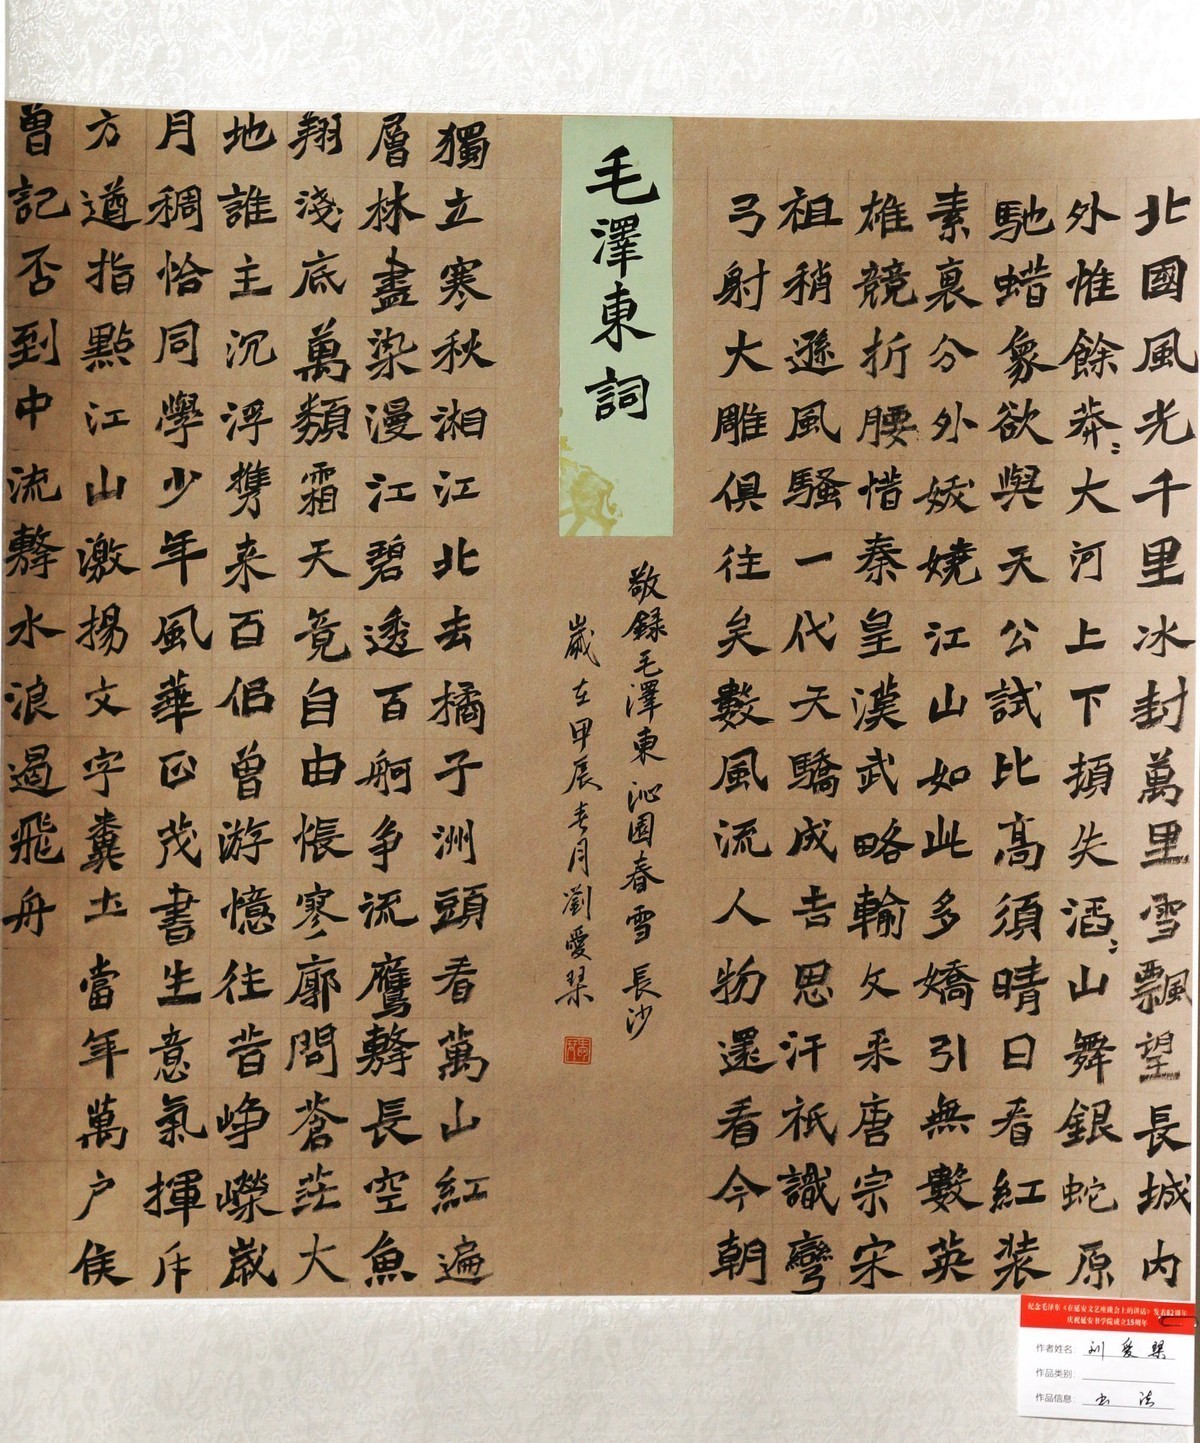 北國風光千里冰封萬里雪飄望長城内
外惟餘莽〻大河上下頓失滔〻山舞銀蛇原
馳蜡象欲與天公試比高須晴日看紅装
素裏分外妖嬈江山如此多嬌引無數英
雄競折腰惜秦皇漢武略輸文采唐宗宋
祖稍遜風騷一代天驕成吉思汗祇識彎
弓射大雕俱往矣數風流人物還看今朝
毛澤東詞
敬録毛澤東沁園春雪長沙
歲在甲辰春月劉愛琹
獨立寒秋湘江北去橘子洲頭看萬山紅遍
層林盡染漫江碧透百舸争流鷹擊長空魚
翔淺底萬類霜天竟自由悵寥廓問蒼茫大
地誰主沉浮攜来百侣曾游憶往昔崢嶸歲
月稠恰同學少年風華正茂書生意氣揮斥
方遒指點江山激揚文字糞土當年萬户侯
曾記否到中流擊水浪遏飛舟
纪念毛泽东《在延安文艺座谈会上的讲话》发表82周年
庆祝延安书学院成立15周年
作者姓名：刘爱琹
作品类别：
作品信息：书法